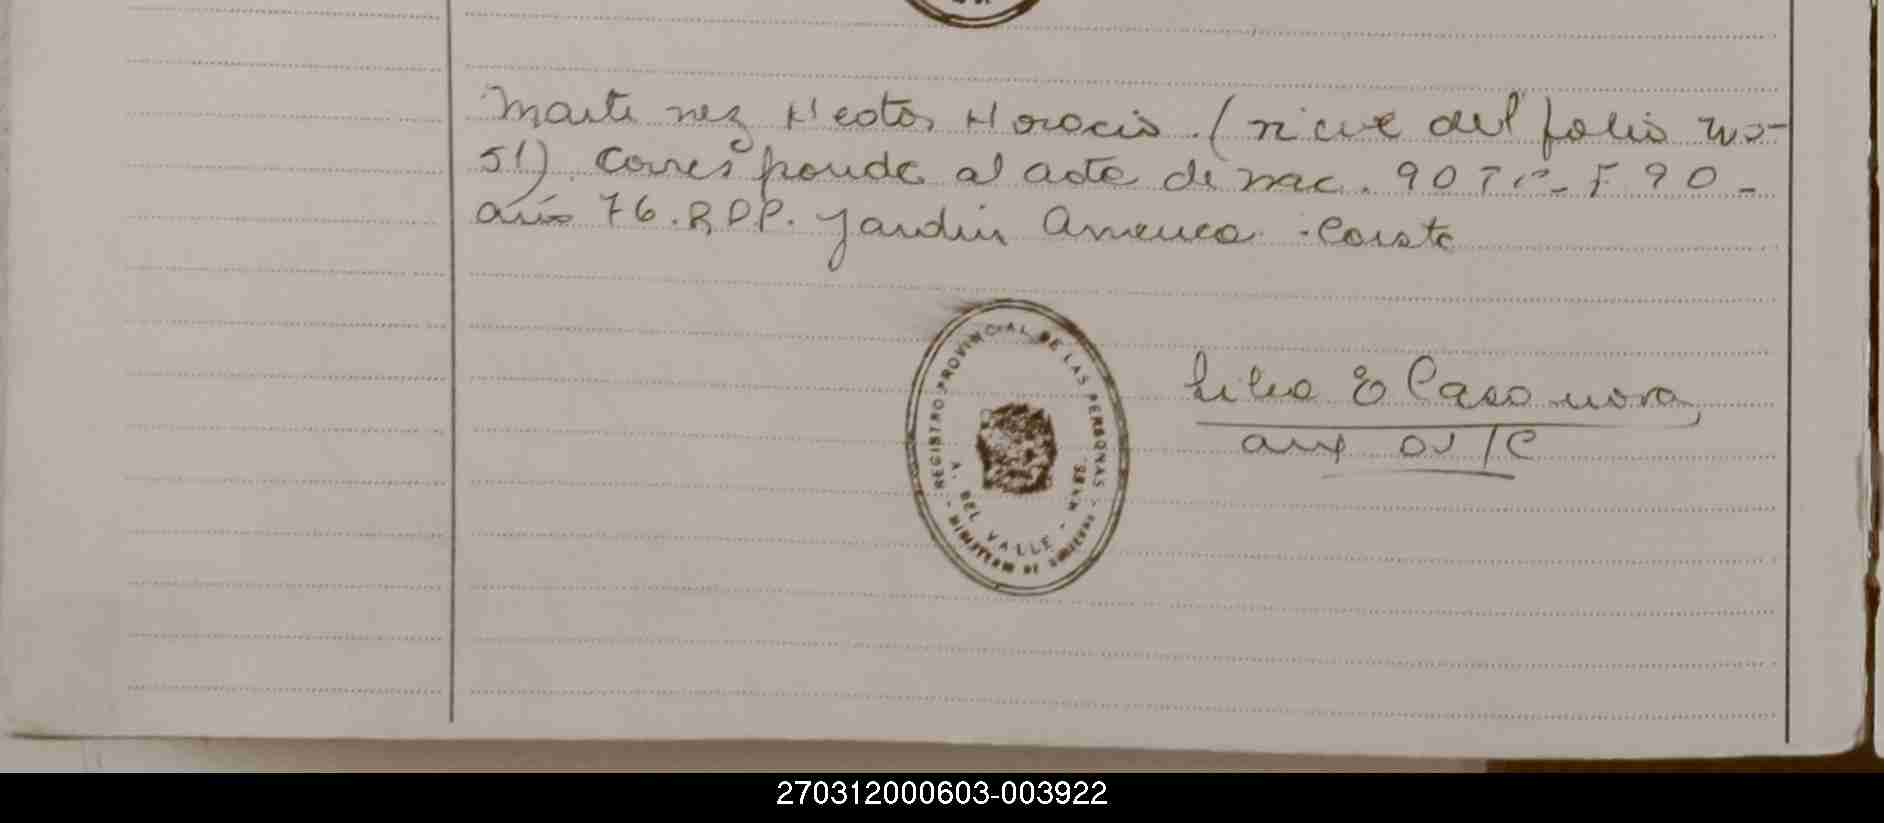 Martinez Hector Horacio. (viene del folio No-
51). Corresponde al acta de nac. 90 Tº- F 90-
año 76. R.P.P. Jardin America. Conste
REGISTRO PROVINCIAL DE LAS PERSONAS
A. DEL VALLE - MNES.
- MINISTERIO DE GOBIERNO -
Lilia E Casanova
aux OS/C
270312000603-003922